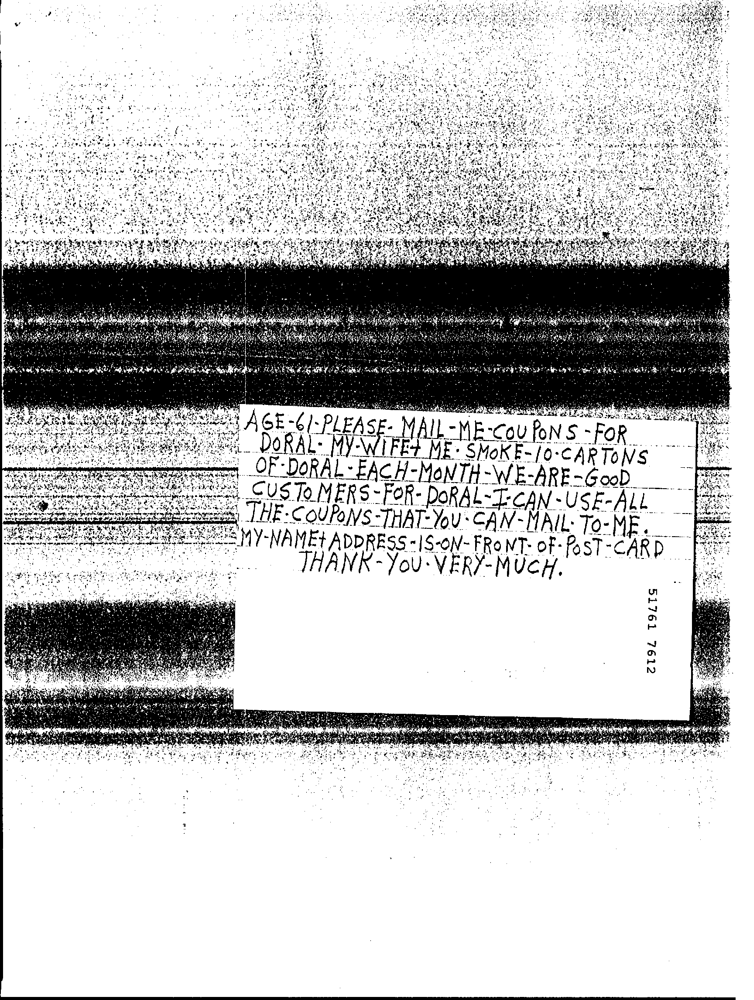 AGE-61-PLEASE- MAIL-ME-COUPONS-FOR
DORAL- MY-WIFE+ ME- SMOKE-10-CARTONS
OF-DORAL-EACH-MONTH-WE-ARE-GOOD
CUSTOMERS-FOR-DORAL-I-CAN-USE-ALL
THE-COUPONS-THAT-YOU-CAN-MAIL-TO-ME.
MY-NAME+ADDRESS-IS-ON-FRONT-OF-POST-CARD
THANK-YOU-VERY-MUCH.
51761 7612